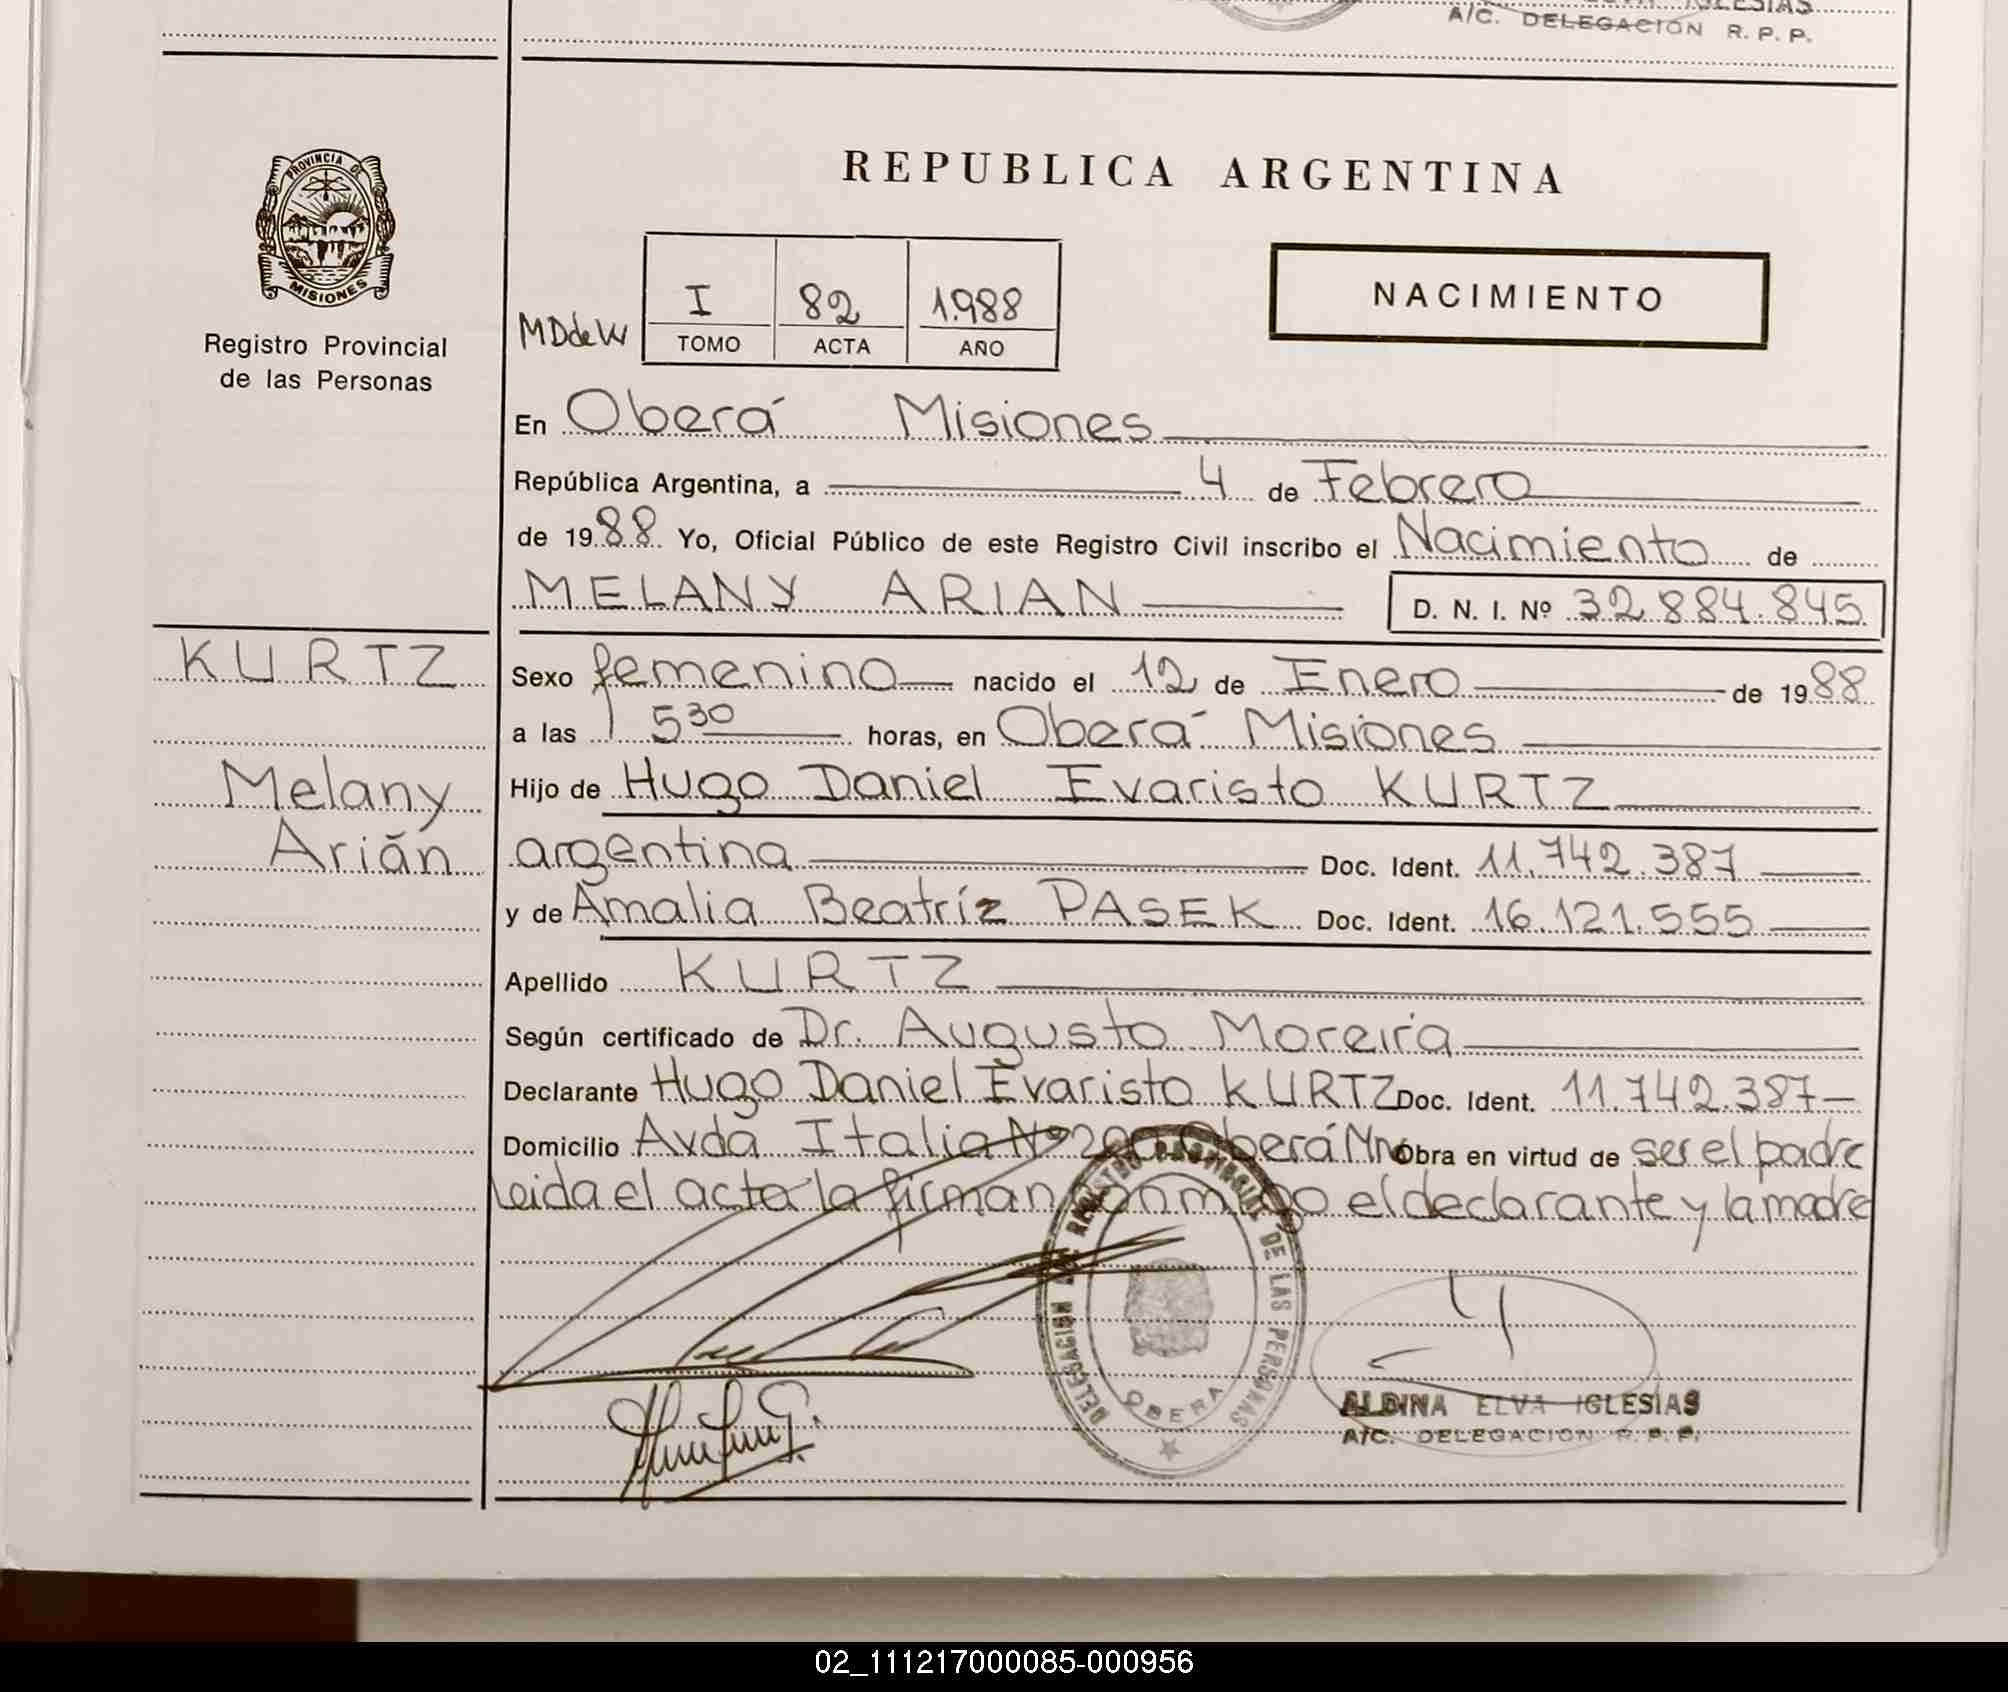 IGLESIAS
A/C. DELEGACION R. P. P.
PROVINCIA DE
MISIONES
Registro Provincial
de las Personas
REPUBLICA ARGENTINA
NACIMIENTO
MDdeW
I 82 1.988
TOMO ACTA AÑO
En Oberá Misiones
República Argentina, a 4 de Febrero
de 1988 Yo, Oficial Público de este Registro Civil inscribo el Nacimiento de
MELANY ARIAN D. N. I. Nº 32.884.845
KURTZ
Melany
Arián
Sexo femenino nacido el 12 de Enero de 1988
a las 5 30 horas, en Oberá Misiones
Hijo de Hugo Daniel Evaristo KURTZ
argentina Doc. Ident. 11.742.387
y de Amalia Beatríz PASEK Doc. Ident. 16.121.555
Apellido KURTZ
Según certificado de Dr. Augusto Moreira
Declarante Hugo Daniel Evaristo KURTZ Doc. Ident. 11.742.387
Domicilio Avda Italia Nº Oberá Mns Obra en virtud de ser el padre
Leida el acta la firman conmigo el declarante y la madre
DELEGACION DEL REGISTRO PROVINCIAL DE LAS PERSONAS
OBERA
ALDINA ELVA IGLESIAS
A/C. DELEGACION R. P. P.
02_111217000085-000956